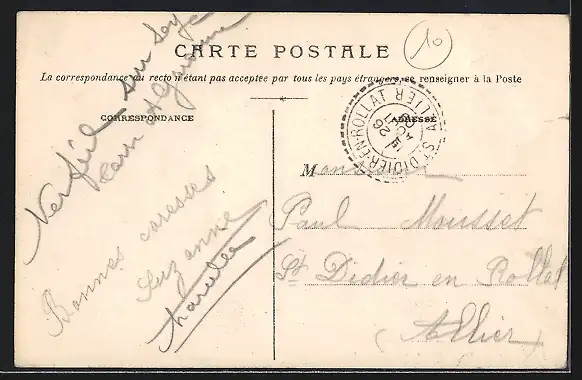 CARTE POSTALE
10
La correspondance au recto n'étant pas acceptée par tous les pays étrangers, se renseigner à la Poste
CORRESPONDANCE
ADRESSE
Verfeil sur Seye
Tarn
Bonnes caresses
Suzanne
ST DIDIER-EN-ROLLAT ALLIER
Monsieur
Paul Mousset
St Didier en Rollat
(Allier)